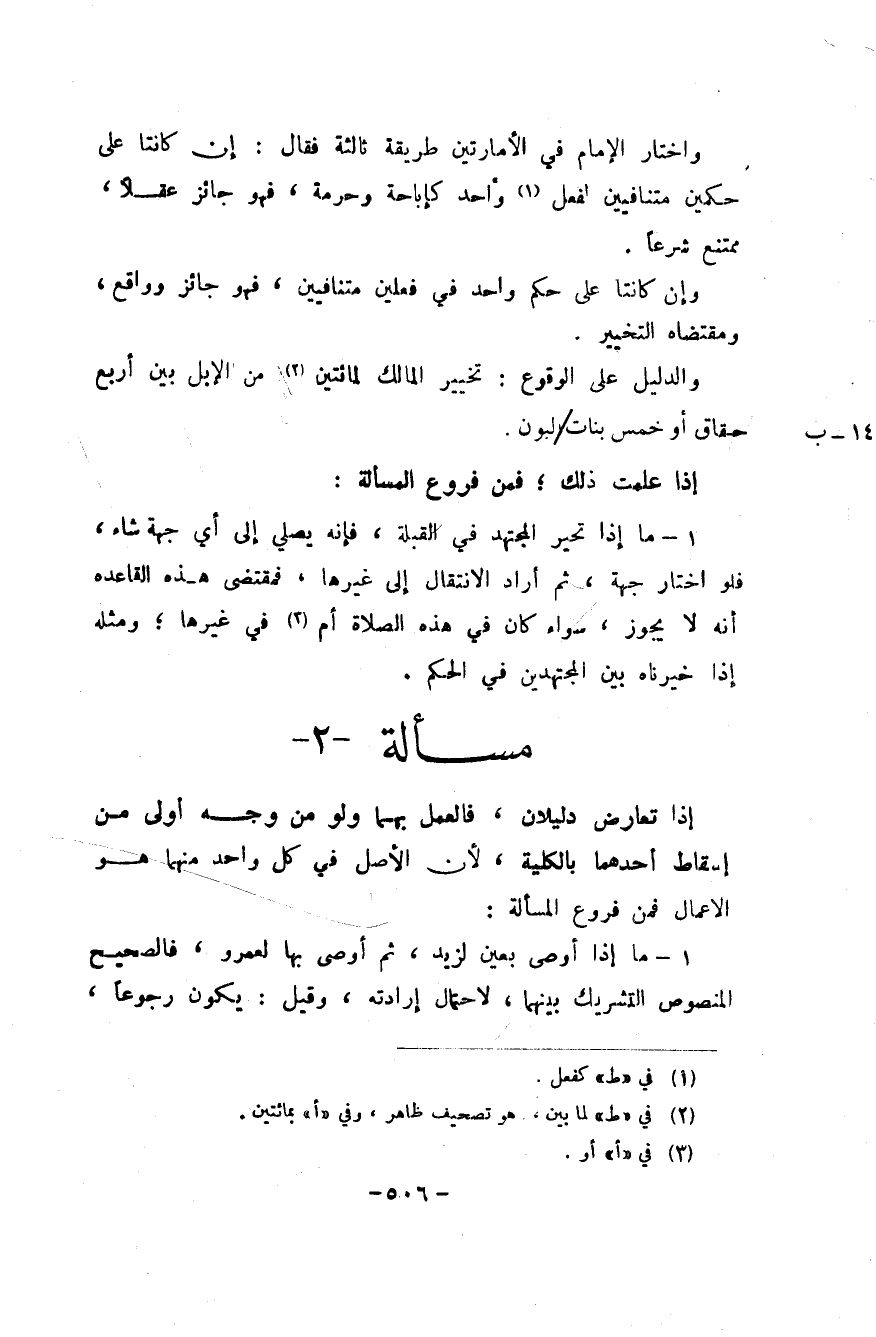 واختار الإمام في الأمارتين طريقة ثالثة فقال : إن كانتا على
حكمين متنافيين لفعل (١) واحد كإباحة وحرمة ، فهو جائز عقـــلاً ،
ممتنع شرعاً .
وإن كانتا على حكم واحد في فعلين متنافيين ، فهو جائز وواقع ،
ومقتضاه التخيير .
والدليل على الوقوع : تخيير المالك لمائتين (٢) من الإبل بين أربع
حقاق أو خمس بنات/لبون .
١٤ – ب
إذا علمت ذلك ؛ فمن فروع المسألة :
١ – ما إذا تحير المجتهد في القبلة ، فإنه يصلي إلى أي جهة شاء ،
فلو اختار جهة ، ثم أراد الانتقال إلى غيرها ، فمقتضى هـذه القاعده
أنه لا يجوز ، سواء كان في هذه الصلاة أم (٣) في غيرها ؛ ومثله
إذا خيرناه بين المجتهدين في الحكم .
مســـألة –٢–
إذا تعارض دليلان ، فالعمل بهـما ولو من وجـــه أولى مـن
إسقاط أحدهما بالكلية ، لأن الأصل في كل واحد منهما هـــو
الاعمال فمن فروع المسألة :
١ – ما إذا أوصى بعين لزيد ، ثم أوصى بها لعمرو ، فالصحيـح
المنصوص التشريك بينهما ، لاحتمال إرادته ، وقيل : يكون رجوعاً ،
(١) في «ط» كفعل .
(٢) في «ط» لما بين ، هو تصحيف ظاهر ، وفي «أ» بمائتين .
(٣) في «أ» أو .
–٥٠٦–